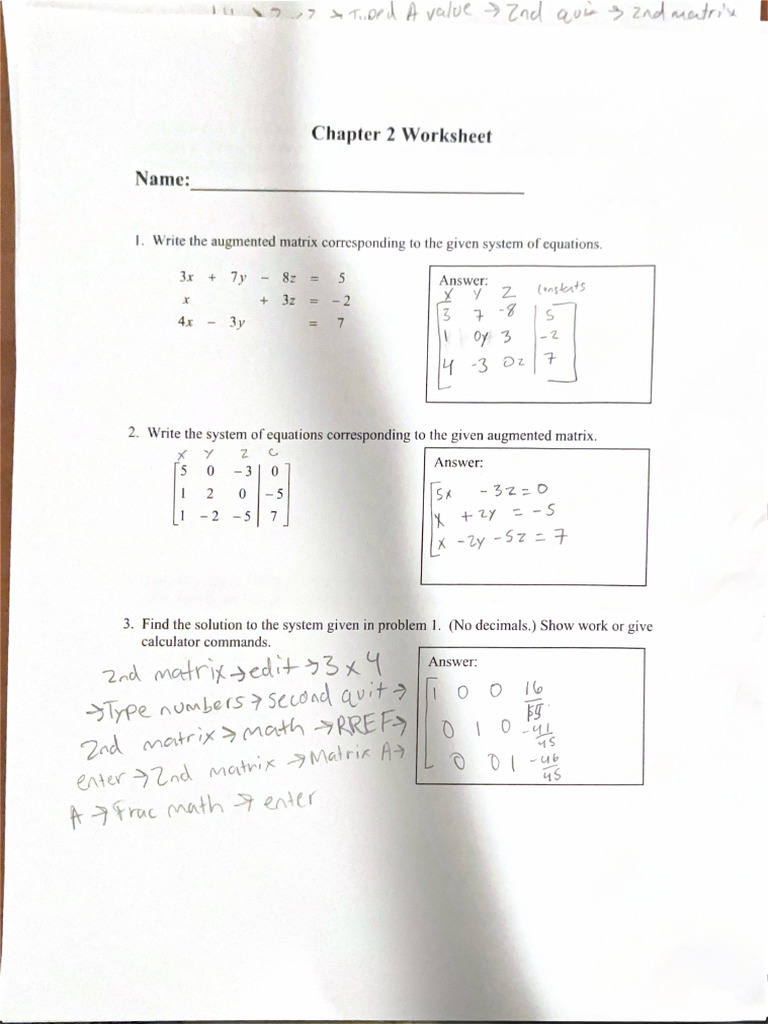 Typed A value → 2nd quit → 2nd matrix
Chapter 2 Worksheet
Name:
1. Write the augmented matrix corresponding to the given system of equations.
3x + 7y − 8z = 5
x + 3z = −2
4x − 3y = 7
Answer:
X Y Z constants
3 7 -8 5
1 0y 3 -2
4 -3 0z 7
2. Write the system of equations corresponding to the given augmented matrix.
X Y Z C
5 0 −3 0
1 2 0 −5
1 −2 −5 7
Answer:
5x - 3z = 0
x + 2y = -5
x - 2y - 5z = 7
3. Find the solution to the system given in problem 1. (No decimals.) Show work or give
calculator commands.
2nd matrix → edit → 3 x 4
→ Type numbers → second quit →
2nd matrix → math → RREF →
enter → 2nd matrix → Matrix A →
A → Frac math → enter
Answer:
1 0 0 16
0 1 0 -41/45
0 0 1 -46/45